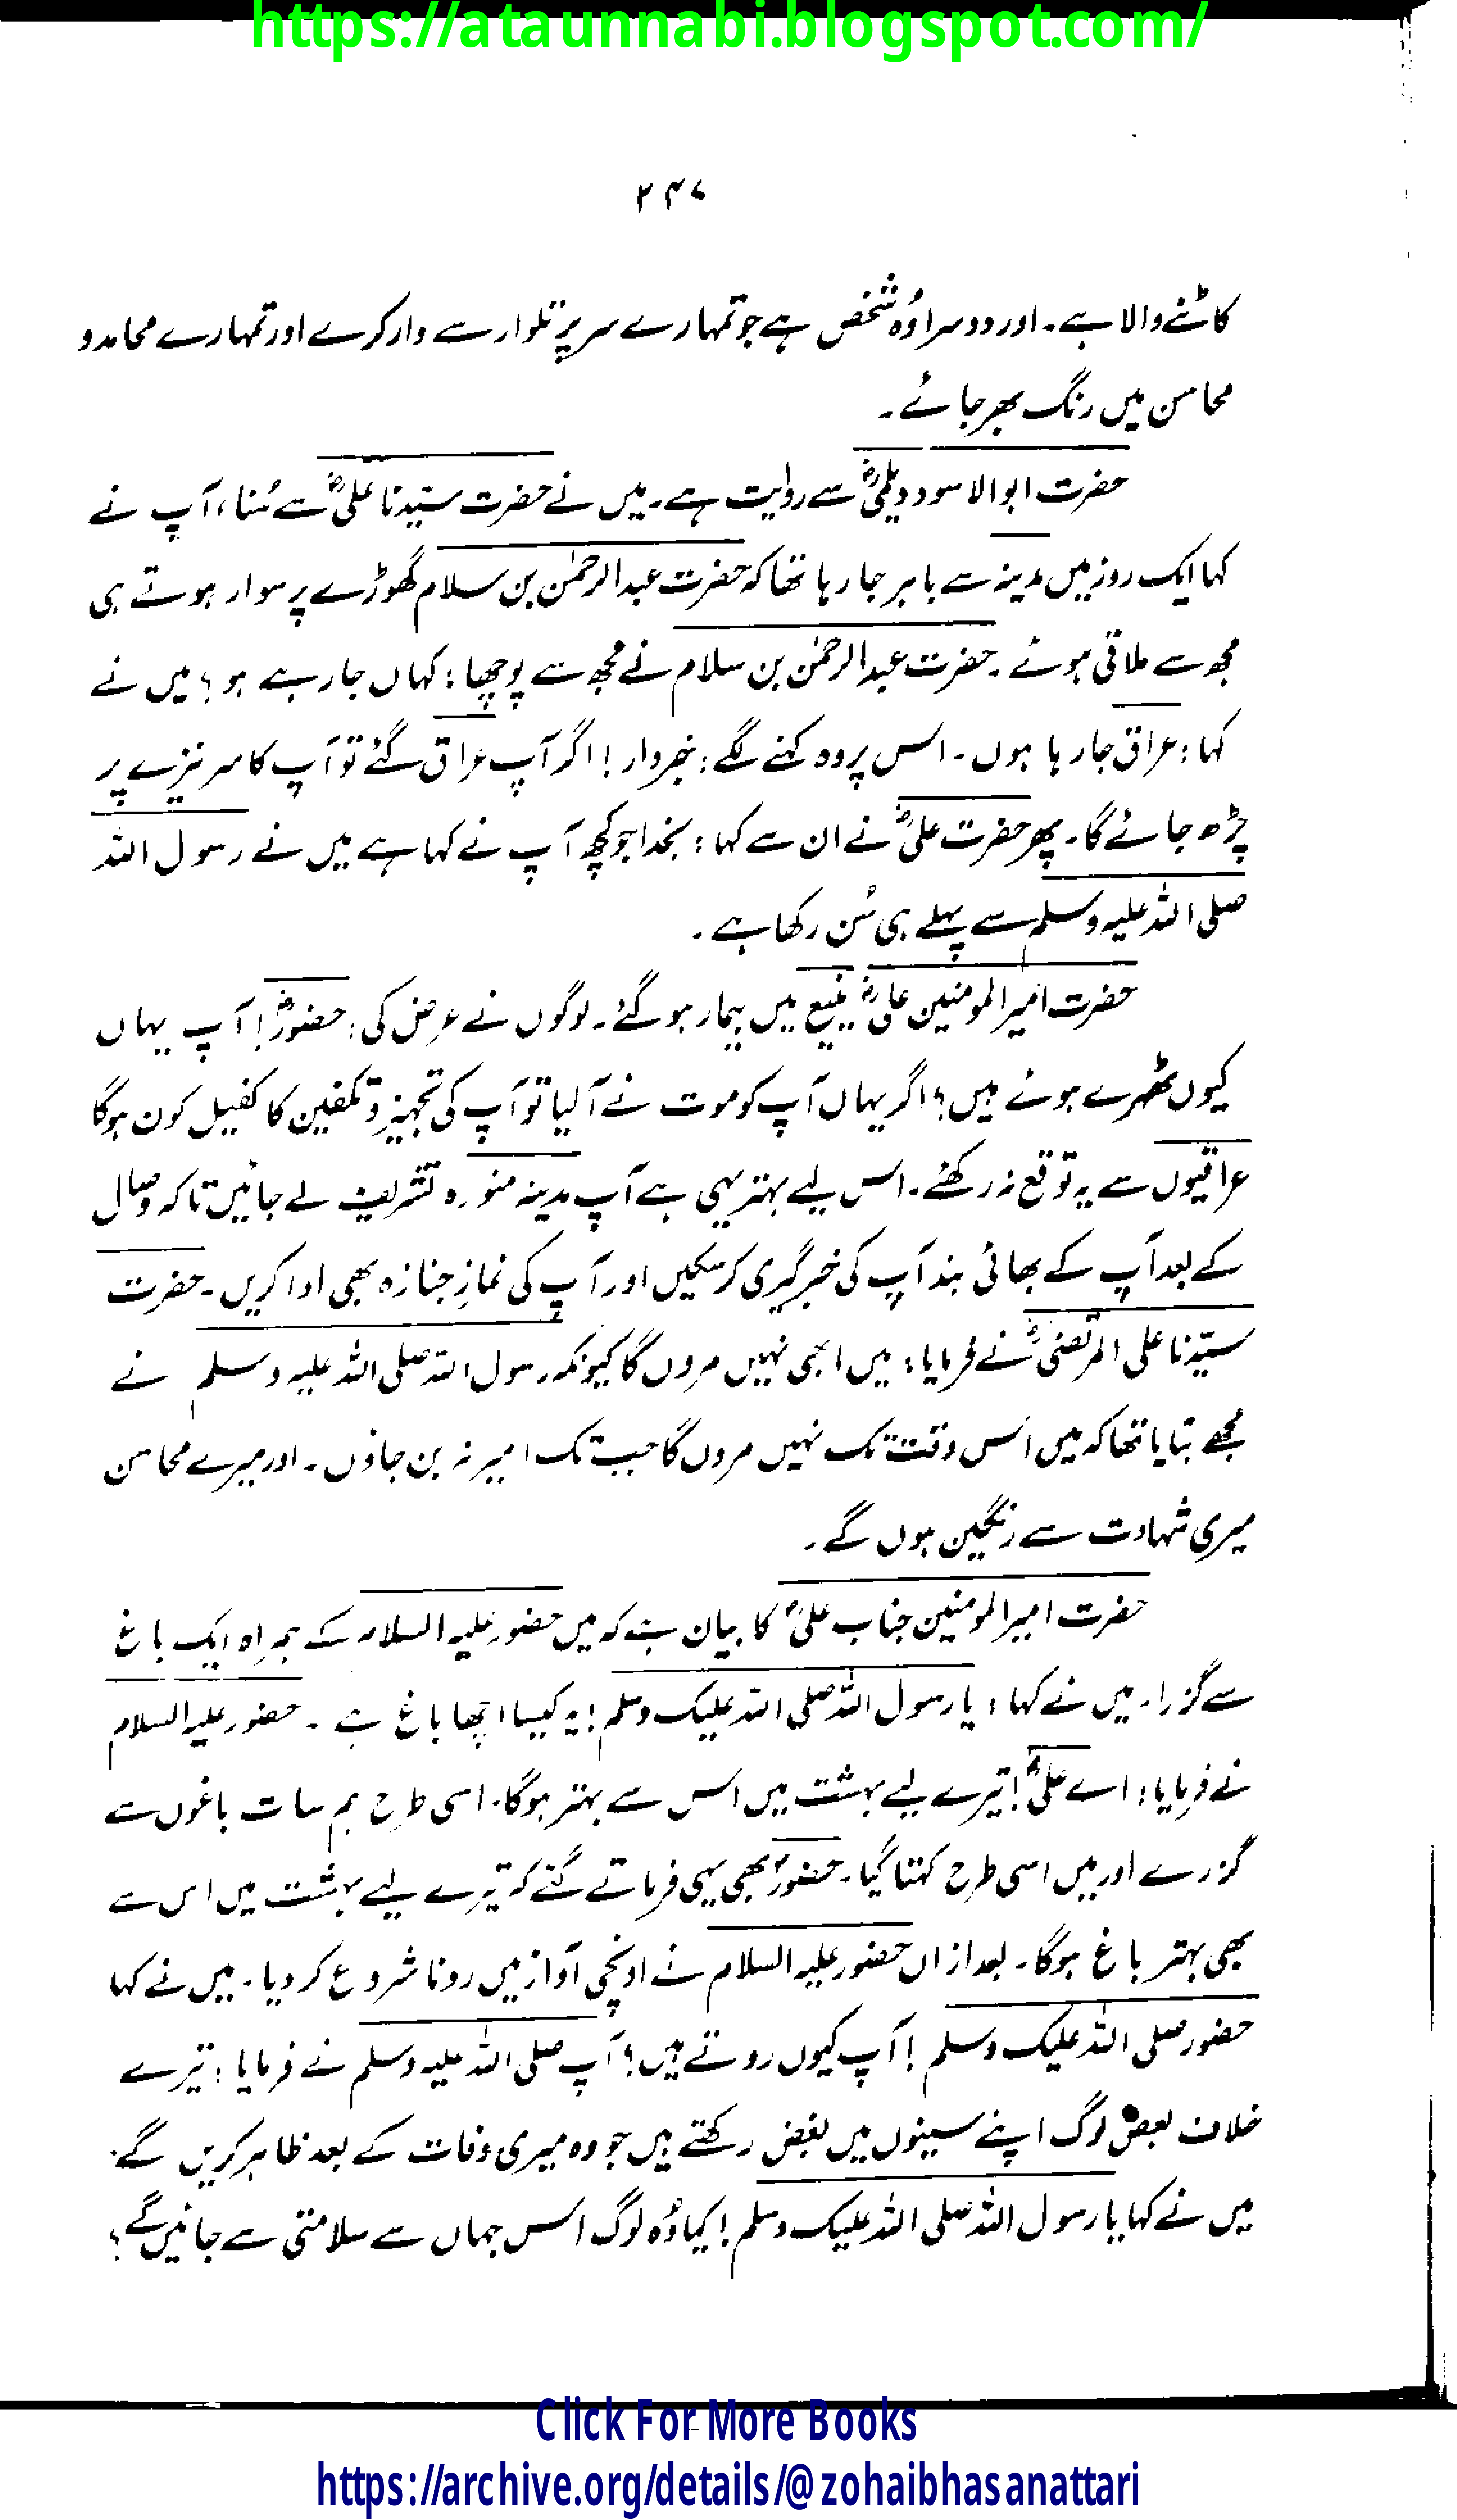 https://ataunnabi.blogspot.com/
۲۴۷
کاٹنے والا ہے۔ اور دوسرا وُہ شخص ہے جو تمہارے سر پر تلوار سے وار کرے اور تمہارے محامد و
محاسن میں رنگ بھر جائے۔
حضرت ابوالاسود دیلیؓ سے روایت ہے۔ میں نے حضرت سیّدنا علیؓ سے سُنا، آپ نے
کہا ایک روز میں مدینہ سے باہر جا رہا تھا کہ حضرت عبدالرحمٰن بن سلام گھوڑے پر سوار ہوتے ہی
مجھ سے ملاقی ہوئے۔ حضرت عبدالرحمٰن بن سلام نے مجھ سے پوچھا: کہاں جا رہے ہو؟ میں نے
کہا: عراق جا رہا ہوں۔ اس پر وہ کہنے لگے: خبردار! اگر آپ عراق گئے تو آپ کا سر نیزے پر
چڑھ جائے گا۔ پھر حضرت علیؓ نے ان سے کہا: بخدا جو کچھ آپ نے کہا ہے میں نے رسول اللہ
صلی اللہ علیہ وسلم سے پہلے ہی سُن رکھا ہے۔
حضرت امیرالمومنین علیؓ ینبع میں بیمار ہو گئے۔ لوگوں نے عرض کی: حضورؓ! آپ یہاں
کیوں ٹھہرے ہوئے ہیں؟ اگر یہاں آپ کو موت نے آ لیا تو آپ کی تجہیز و تکفین کا کفیل کون ہوگا
عراقیوں سے یہ توقع نہ رکھئے۔ اس لیے بہتر یہی ہے آپ مدینہ منورہ تشریف لے جائیں تاکہ وصال
کے بعد آپ کے بھائی بند آپ کی خبر گیری کر سکیں اور آپ کی نمازِ جنازہ بھی ادا کریں۔ حضرت
سیّدنا علی المرتضیٰؓ نے فرمایا: میں ابھی نہیں مروں گا کیونکہ رسول اللہ صلی اللہ علیہ وسلم نے
مجھے بتایا تھا کہ میں اُس وقت تک نہیں مروں گا جب تک امیر نہ بن جاؤں۔ اور میرے محاسن
میری شہادت سے رنگین ہوں گے۔
حضرت امیرالمومنین جناب علیؓ کا بیان ہے کہ میں حضور علیہ السلام کے ہمراہ ایک باغ
سے گزرا۔ میں نے کہا: یا رسول اللہ صلی اللہ علیک وسلم! یہ کیسا اچھا باغ ہے۔ حضور علیہ السلام
نے فرمایا: اے علیؓ! تیرے لیے بہشت میں اس سے بہتر ہوگا۔ اسی طرح ہم سات باغوں سے
گزرے اور میں اسی طرح کہتا گیا۔ حضورؐ بھی یہی فرماتے گئے کہ تیرے لیے بہشت میں اس سے
بھی بہتر باغ ہوگا۔ بعد ازاں حضور علیہ السلام نے اونچی آواز میں رونا شروع کر دیا۔ میں نے کہا
حضور صلی اللہ علیک وسلم! آپ کیوں روتے ہیں؟ آپ صلی اللہ علیہ وسلم نے فرمایا: تیرے
خلاف بعض لوگ اپنے سینوں میں بغض رکھتے ہیں جو وہ میری وفات کے بعد ظاہر کریں گے۔
میں نے کہا یا رسول اللہ صلی اللہ علیک وسلم! کیا وُہ لوگ اس جہاں سے سلامتی سے جائیں گے؟
Click For More Books
https://archive.org/details/@zohaibhasanattari